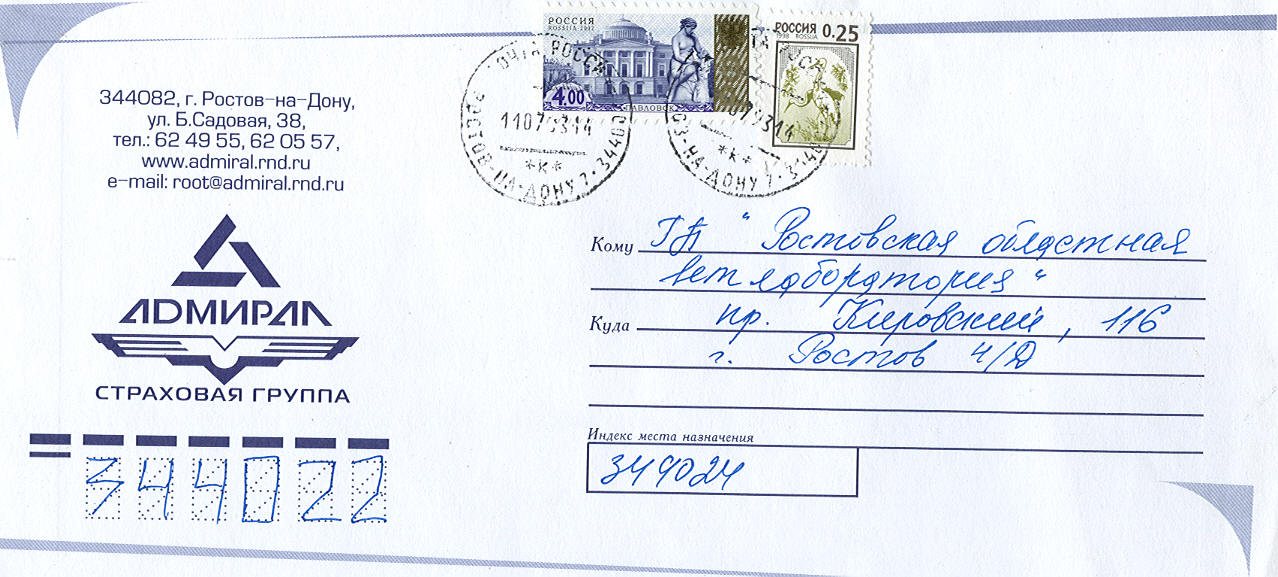 344082, г. Ростов-на-Дону,
ул. Б.Садовая, 38,
тел.: 62 49 55, 62 05 57,
www.admiral.rnd.ru
e-mail: root@admiral.rnd.ru
АДМИРАЛ
СТРАХОВАЯ ГРУППА
РОССИЯ
ROSSIJA 1997
4.00
ПАВЛОВСК
РОССИЯ 0.25
1998 ROSSIJA
ПОЧТА РОССИИ
РОСТОВ-НА-ДОНУ 7
*К*
НА-ДОНУ 7
*К*
Кому ГП " Ростовская областная
ветлаборатория "
Куда пр. Кировский, 116
г. Ростов н/Д
Индекс места назначения
344022